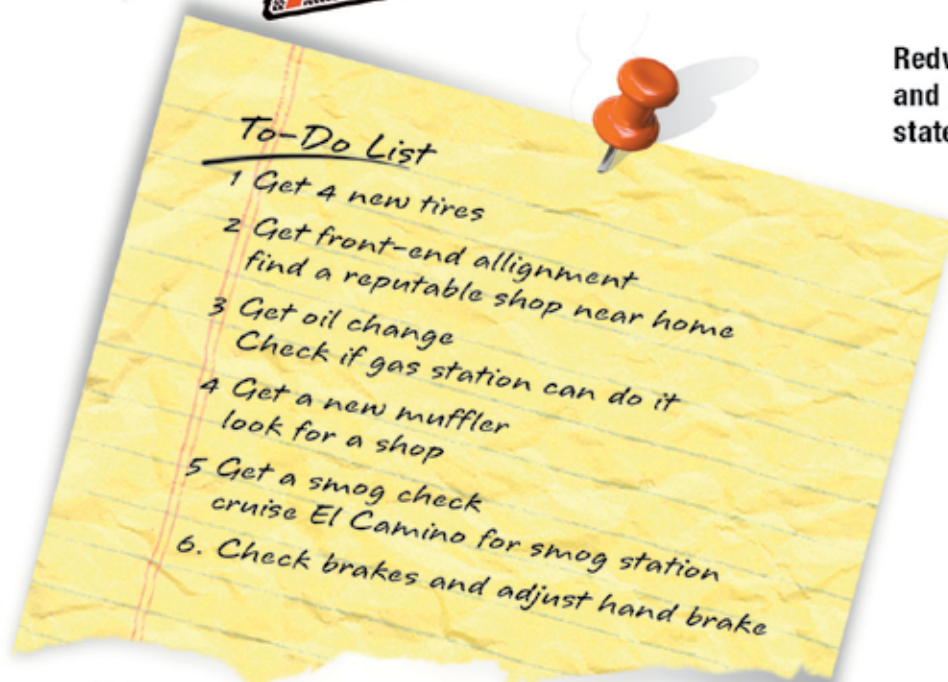 Redw
and
state
To-Do List
1 Get 4 new tires
2 Get front-end allignment
find a reputable shop near home
3 Get oil change
Check if gas station can do it
4 Get a new muffler
look for a shop
5 Get a smog check
cruise El Camino for smog station
6. Check brakes and adjust hand brake